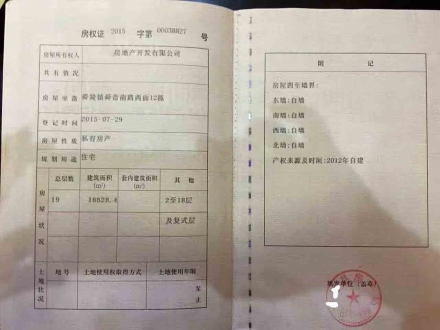 房权证 2015 字第 0003BB27 号
房屋所有权人 房地产开发有限公司
共有情况
房屋坐落 舜陵镇舜帝南路西面12栋
登记时间 2015-07-29
房屋性质 私有房产
规划用途 住宅
房屋状况
总层数 建筑面积(m²) 套内建筑面积(m²) 其他
19 16828.4 2至18层
及复式层
土地状况
地号 土地使用权取得方式 土地使用年限
至
止
附记
房屋四至墙界:
东墙:自墙
南墙:自墙
西墙:自墙
北墙:自墙
产权来源及时间:2012年自建
填发单位(盖章)